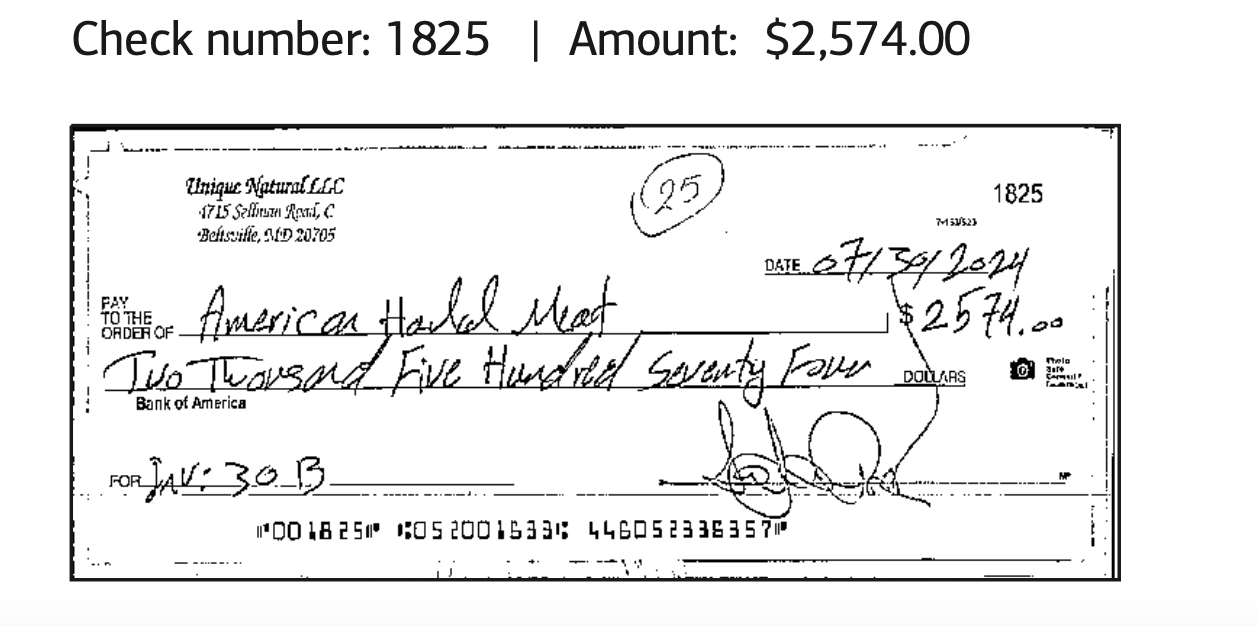 Check number: 1825 | Amount: $2,574.00
Unique Natural LLC
4715 Sellman Road, C
Beltsville, MD 20705
25
1825
7-163/523
DATE 07/30/2024
PAY TO THE ORDER OF American Halal Meat $2574.00
Two Thousand Five Hundred Seventy Four DOLLARS
Bank of America
FOR Inv: 30 B
MP
⑈001825⑈ ⑆052001633⑆ 446052336357⑈